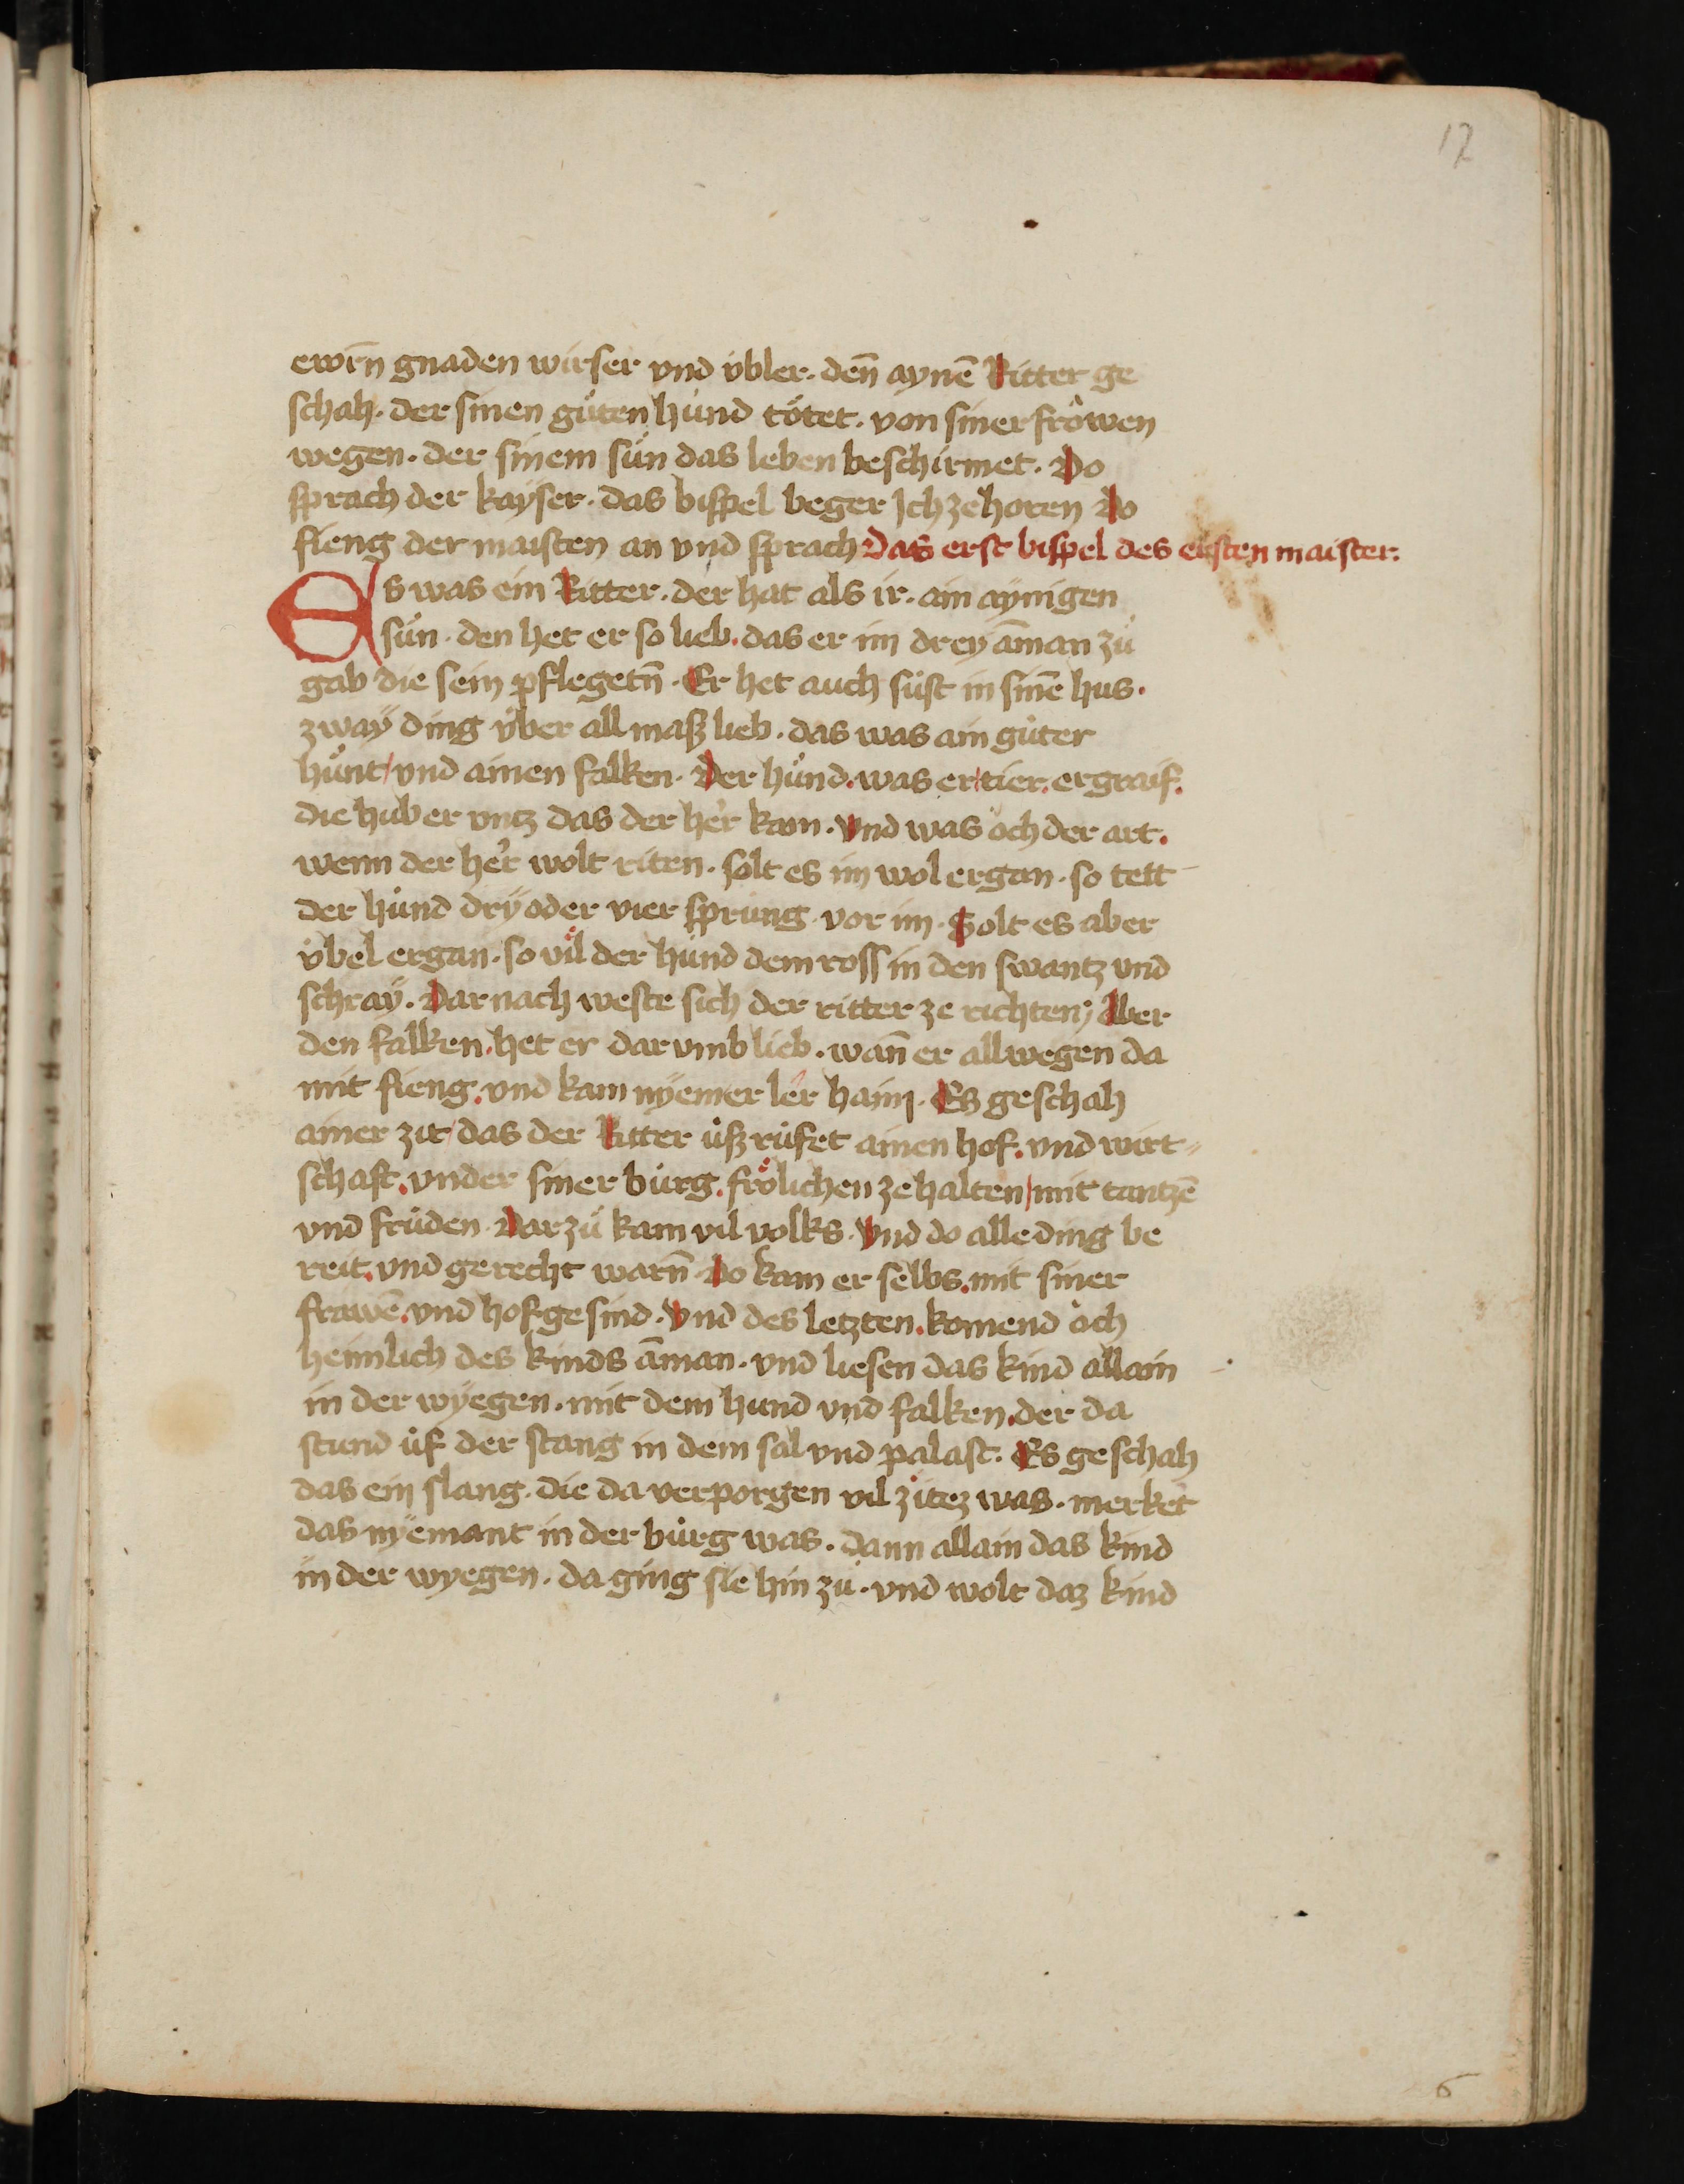 17
ewrn̄ gnaden wirser vnd v̈bler. den̄ aynē Ritter ge
schah. der sinen gůten hund tötet. von siner frowen
wegen. der sinem sun das leben beschirmet. Do
sprach der kayser. das bispel beger Jch ze horen Do
fieng der maisten an vnd sprach Das erst bispel des ersten maister.
Es was ein Ritter. der hat als ir. ain aynigen
sun. den het er so lieb. das er im drey am̄an zů
gab die sein pflegetn̄. Er het auch sust in sinē hus.
zwaÿ ding v̈ber all masz lieb. das was ain gůter
hunt / vnd ainen falken. Der hund. was er / tier. ergraif.
die hub er vntz das der her kam. Vnd was och der art.
wenn der her wolt riten. solt es im wol ergan. so tett
der hund drÿ oder vier sprung vor im. Solt es aber
v̈bel ergan. so vil der hund dem ross in den swantz vnd
schraÿ. Dar nach weste sich der ritter ze richten; Aber
den falken. het er dar vmb lieb. wan̄ er allwegen da
mit fieng. vnd kam nÿemer ler haim. Es geschah
ainer zit / das der Ritter usz rufet ainen hof. vnd wirt=
schaft. vnder siner burg. frölichen ze halten / mit tantzē
vnd fruden. Dar zů kam vil volks. Vnd do alle ding be
reit. vnd gerecht warn̄ Do kam er selbs. mit siner
frawē. vnd hofgesind. Vnd des letzten. komend och
heimlich des kinds am̄an. vnd liesen das kind allain
in der wÿegen. mit dem hund vnd falken. der da
stund uf der stang in dem sal vnd palast. Es geschah
das ein slang. die da verporgen vil zitez was. merket
das nÿemant in der burg was. dann allain das kind
in der wyegen. da ging sie hin zů. vnd wolt daz kind
6